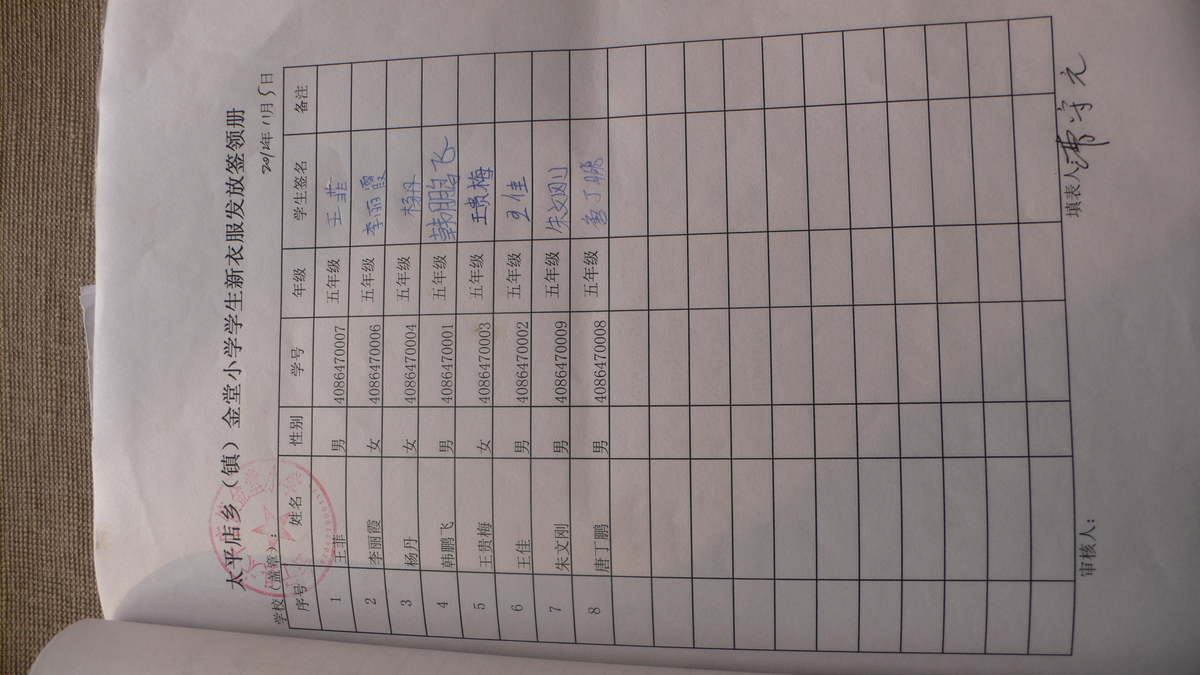 太平店乡（镇）金堂小学学生新衣服发放签领册
学校（盖章）： 2012年11月5日
序号 姓名 性别 学号 年级 学生签名 备注
1 王菲 男 4086470007 五年级 王菲
2 李丽霞 女 4086470006 五年级 李丽霞
3 杨丹 女 4086470004 五年级 杨丹
4 韩鹏飞 男 4086470001 五年级 韩鹏飞
5 王贵梅 女 4086470003 五年级 王贵梅
6 王佳 男 4086470002 五年级 王佳
7 朱文刚 男 4086470009 五年级 朱文刚
8 唐丁鹏 男 4086470008 五年级 唐丁鹏
审核人： 填表人 守元